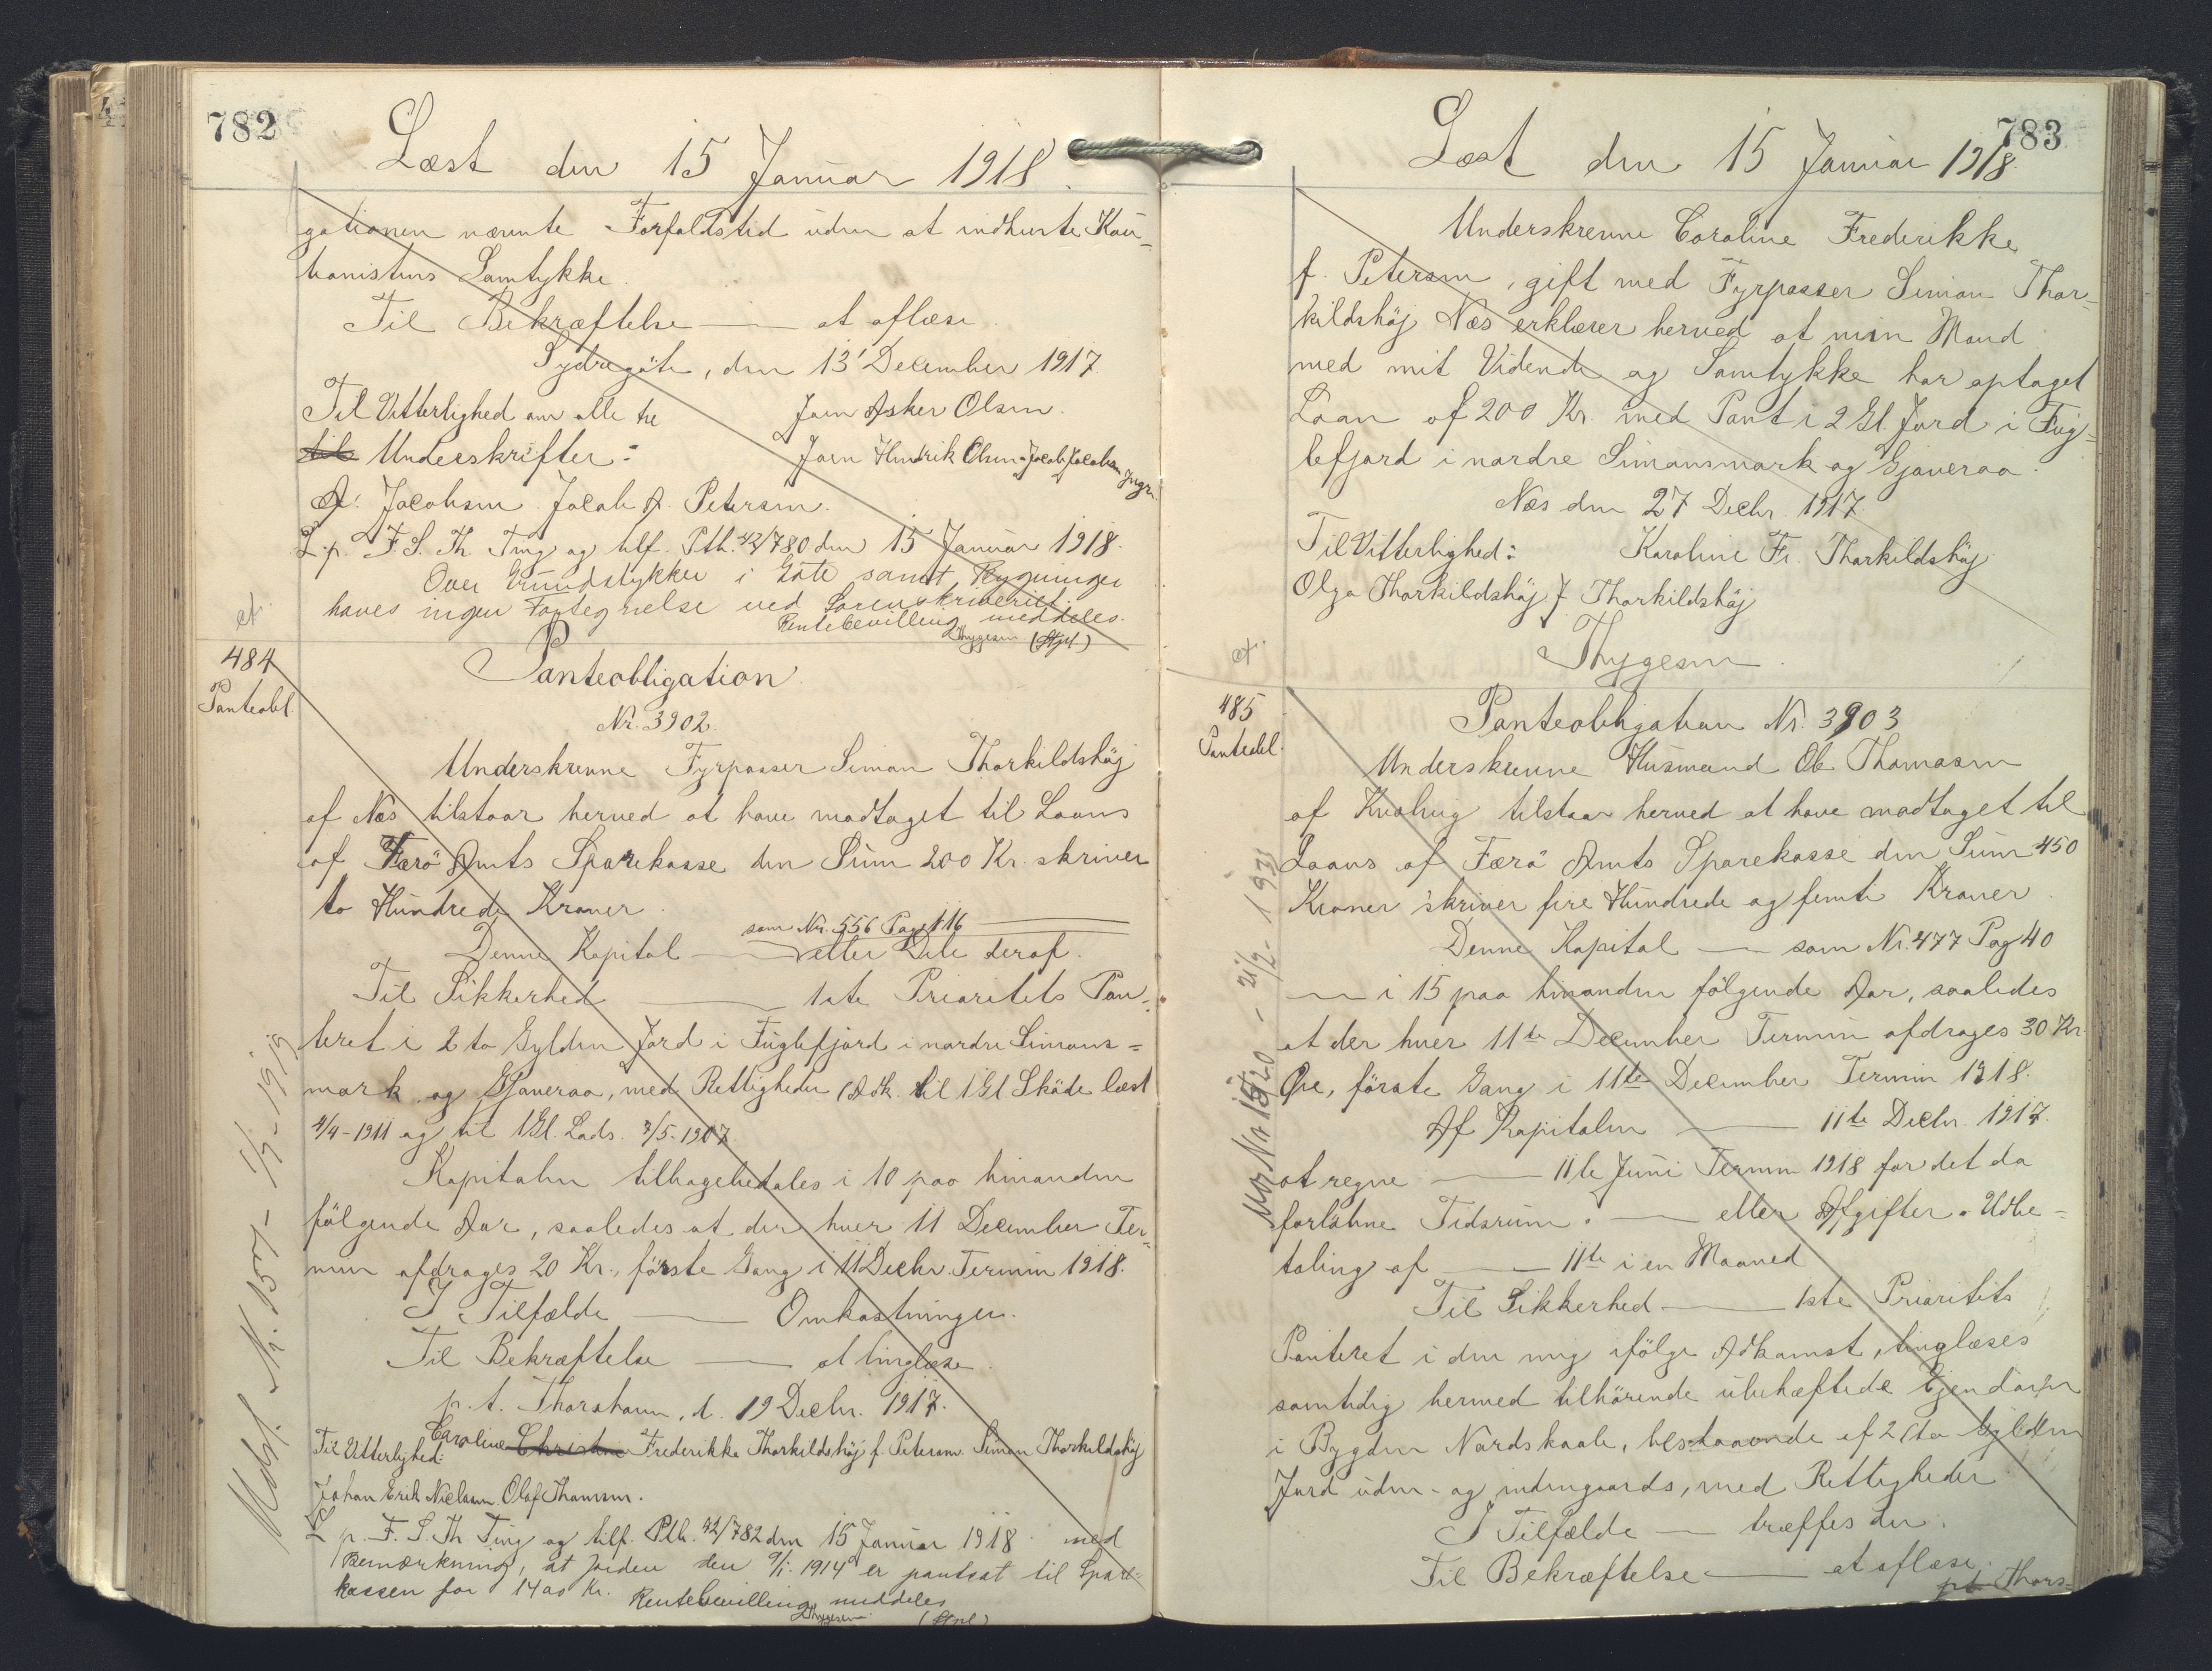 782
Læst den 15 Januar 1918.
gationen nævnte Forfaldstid uden at indhente Kau-
tionistens Samtykke.
Til Bekræftelse — at aflæse.
Sydregöte, den 13' December 1917.
Til Vitterlighed om alle tre
Joen Asker Olsen.
til Underskrifter:
Joen Hendrik Olsen. Jacob Jacobsen
A. Jacobsen. Jacob A. Petersen.
L. p. F. S. Th. Ting og tilf. Ptb. 42/780 den 15 Januar 1918.
Over Grundstykker i Göte samt Bygninger
haves ingen Fortegnelse ved Sorenskriveriet.
Rentebevilling meddeles.
Thygesen (Stpl)
ct.
484
Panteobl.
Panteobligation.
Nr. 3902.
Underskrevne Fyrpasser Simon Thorkildshöj
af Næs tilstaar herved at have modtaget til Laans
af Færö Amts Sparekasse den Sum 200 Kr. skriver
to Hundrede Kroner.
som Nr. 556 Pag 116
Denne Kapital — eller Dele deraf.
Til Sikkerhed — 1ste Prioritets Pan-
teret i 2 to Gylden Jord i Fuglefjord i nordre Simons-
mark og Gjoveraa, med Rettigheder (Adk. til 1 Gl Sköde læst
4/4-1911 og til 1 Gl. Lods. 7/5-1907.
Kapitalen tilbagebetales i 10 paa hinanden
fölgende Aar, saaledes at der hver 11 December Ter-
min afdrages 20 Kr., förste Gang i 11 Decbr. Termin 1918.
I Tilfælde — Omkostninger.
Til Bekræftelse — at tinglæse.
p. t. Thorshavn, d. 19 Decbr. 1917.
Til Vitterlighed: Caroline Christine Frederikke Thorkildshöj f. Petersen. Simon Thorkildshöj
Johan Erik Nielsen. Olaf Thomsen.
L p. F. S. Th Ting og tilf. Ptb. 42/782 den 15 Januar 1918 med
Bemærkning, at Jorden den 9/1. 1914 er pantsat til Spare-
kassen for 1400 Kr. Rentebevilling meddeles
Thygesen (Stpl)
783
Læst den 15 Januar 1918.
Underskrevne Caroline Frederikke
f. Petersen, gift med Fyrpasser Simon Thor-
kildshöj Næs erklærer herved at min Mand
med mit Vidende og Samtykke har optaget
Laan af 200 Kr. med Pant i 2 Gl. Jord i Fug-
lefjord i nordre Simonsmark og Gjoveraa.
Næs den 27 Decbr. 1917.
Til Vitterlighed:
Karoline Fr. Thorkildshöj
Olga Thorkildshöj J Thorkildshöj
Thygesen.
ct.
485
Panteobl.
Panteobligation Nr. 3903
Underskrevne Husmand Ole Thomasen
af tilstaar herved at have modtaget til
Laans af Færö Amts Sparekasse den Sum 450
Kroner skriver fire Hundrede og femti Kroner.
Denne Kapital — som Nr. 477 Pag 40
— i 15 paa hinanden fölgende Aar, saaledes
at der hver 11te December Termin afdrages 30 Kr.
Öre, förste Gang i 11te December Termin 1918.
Af Kapitalen — 11te Decbr. 1917.
at regne — 11te Juni Termin 1918 for det da
forløbne Tidsrum. — eller Afgifter. Udbe-
taling af — 11te i en Maaned
Til Sikkerhed — 1ste Prioritets
Panteret i den mig ifölge Adkomst, tinglæses
samtidig hermed tilhörende ubehæftede Ejendom
i Bygden Nordskaale, bestaaende af 2 to Gylden
Jord uden- og indengaards, med Rettigheder
I Tilfælde — træffes der.
Til Bekræftelse — at aflæse.
pt. Thors-